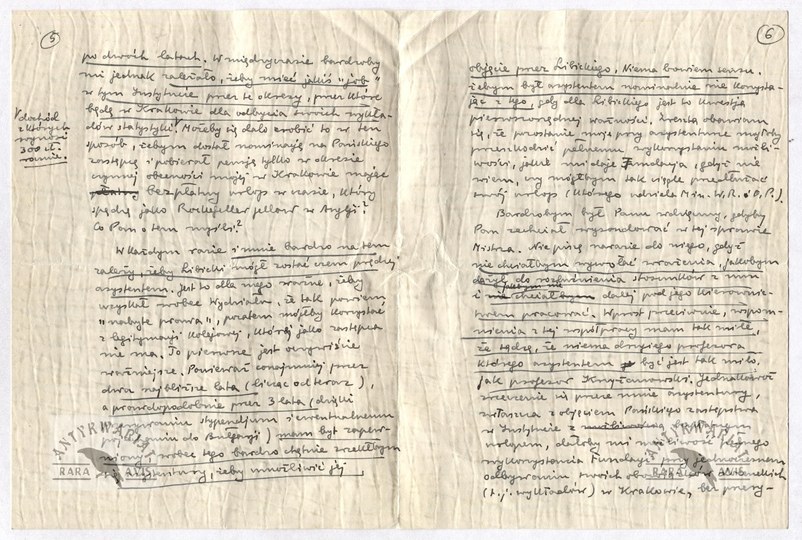 5
po dwóch latach. W międzyczasie bardzoby
mi jednak zależało, żeby mieć jakiś "job"
w tym Instytucie przez te okresy, przez które
będę w Krakowie dla odbycia swoich wykła-
dów statystyki. Możeby się dało zrobić to w ten
sposób, żebym dostał nominację na Pańskiego
zastępcę i pobierał pensję tylko w okresie
czynnej obecności mojej w Krakowie mając
bezpłatny urlop w czasie, który
spędzę jako Rockefeller fellow w Anglji?
Co Pan o tem myśli?
dochód
z których
wynosi
300 zł.
rocznie.
W każdym razie i mnie bardzo na tem
zależy, żeby Libicki mógł zostać czem prędzej
asystentem. Jest to dla niego ważne, żeby
uzyskał wobec Wydziału, że tak powiem,
"nabyte prawa", pozatem mógłby korzystać
z legitymacji kolejowej, której jako zastępca
nie ma. To pierwsze jest oczywiście
ważniejsze. Ponieważ conajmniej przez
dwa najbliższe lata (licząc od teraz),
a prawdopodobnie przez 3 lata (dzięki
stypendjum i ewentualnemu
do Bułgarji) mam byt zapew-
niony, wobec tego bardzo chętnie zrzekłbym
się asystentury, żeby umożliwić jej
6
objęcie przez Libickiego. Niema bowiem sensu,
żebym był asystentem nominalnie nie korzysta-
jąc z tego, gdy dla Libickiego jest to kwestja
pierwszorzędnej ważności. Zresztą obawiam
się, że pozostanie moje przy asystenturze mogłoby
przeszkodzić pełnemu wykorzystaniu możli-
wości, jakie mi daje Fundacja, gdyż nie
wiem, czy mógłbym tak ciągle przedłużać
swój urlop (którego udziela Min. W.R. i O.P.).
Bardzobym był Panu wdzięczny, gdyby
Pan zechciał wysondować w tej sprawie
Mistrza. Nie piszę narazie do niego, gdyż
nie chciałbym wywołać wrażenia, jakobym
dążył do rozluźnienia stosunków z nim
i nie chciał dalej pod jego kierownic-
twem pracować. Wprost przeciwnie, wspom-
nienia z tej współpracy mam tak miłe,
że sądzę, że niema drugiego profesora
którego asystentem być jest tak miło,
jak profesor Krzyżanowski. Jednakowoż
zrzeczenie się przeze mnie asystentury,
zwłaszcza z objęciem Pańskiego zastępstwa
w Instytucie z bezpłatnym
urlopem, dałoby mi możliwość pełnego
wykorzystania Fundacji przy jednoczesnem
odbywaniu swoich obowiązków docenckich
(t.j. wykładów) w Krakowie, bez przery-
ANTYKWARIAT
RARA AVIS
ANTYKWARIAT
RARA AVIS